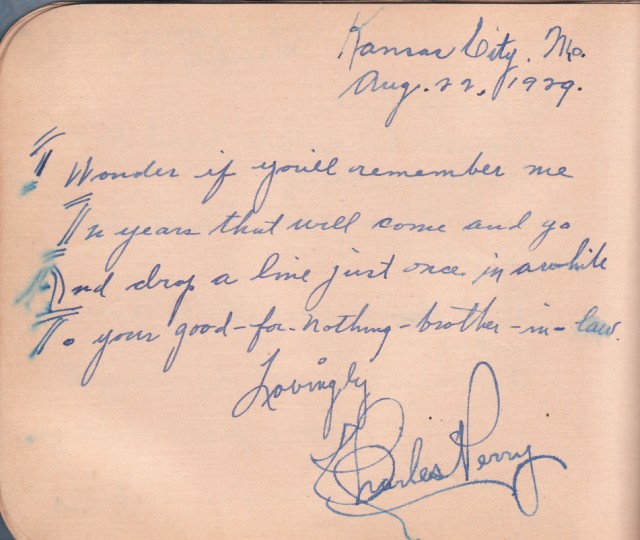 Kansas City, Mo.
Aug. 22, 1929.
I Wonder if you'll remember me
In years that will come and go
And drop a line just once in awhile
To your good-for-nothing-brother-in-law.
Lovingly
Charles Perry